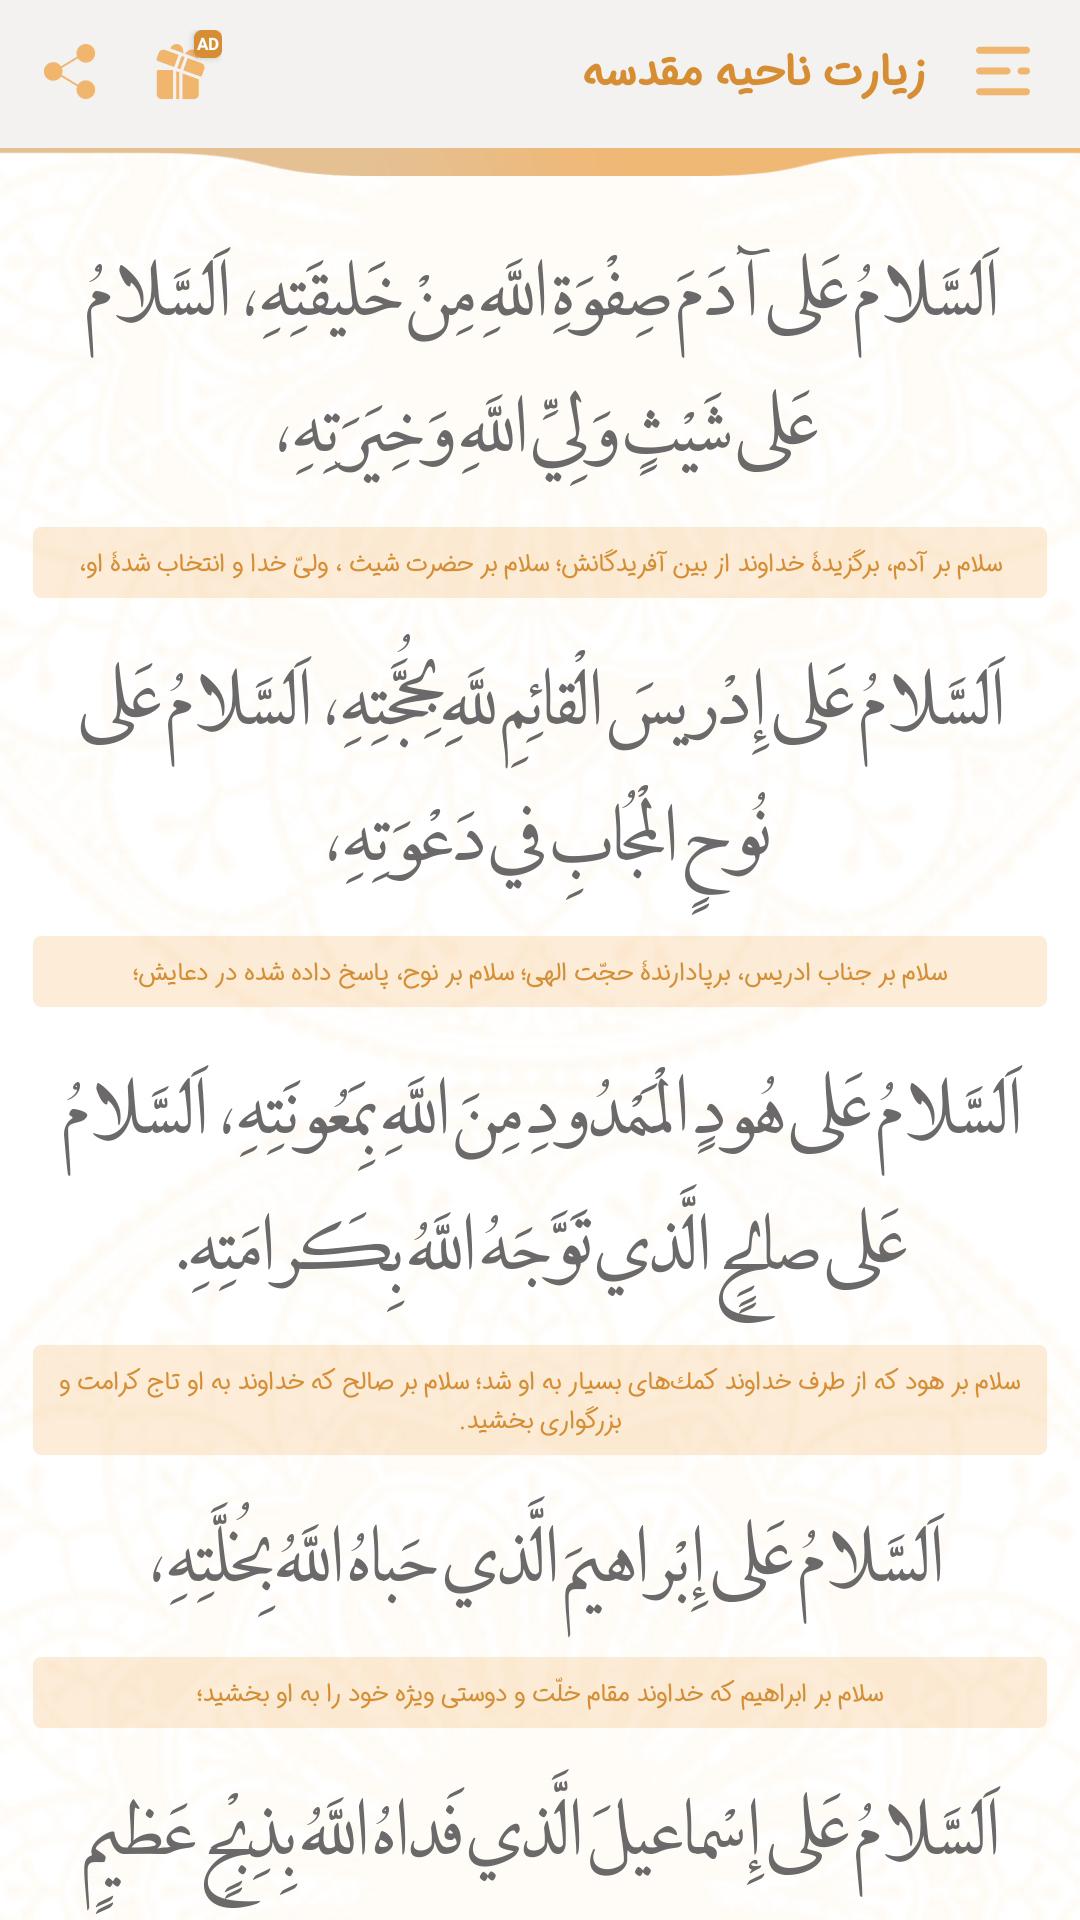 زیارت ناحیه مقدسه
AD
اَلسَّلامُ عَلى آدَمَ صِفْوَةِ اللَّهِ مِنْ خَليقَتِهِ، اَلسَّلامُ
عَلى شَيْثٍ وَلِيِّ اللَّهِ وَ خِيَرَتِهِ،
سلام بر آدم، برگزیدهٔ خداوند از بین آفریدگانش؛ سلام بر حضرت شیث ، ولیّ خدا و انتخاب شدهٔ او،
اَلسَّلامُ عَلى إِدْريسَ الْقائِمِ للَّهِ بِحُجَّتِهِ، اَلسَّلامُ عَلى
نُوحٍ الْمُجابِ في دَعْوَتِهِ،
سلام بر جناب ادریس، برپادارندهٔ حجّت الهی؛ سلام بر نوح، پاسخ داده شده در دعایش؛
اَلسَّلامُ عَلى هُودٍ الْمَمْدُودِ مِنَ اللَّهِ بِمَعُونَتِهِ، اَلسَّلامُ
عَلى صالِحٍ الَّذي تَوَّجَهُ اللَّهُ بِكَرامَتِهِ.
سلام بر هود که از طرف خداوند کمك‌های بسیار به او شد؛ سلام بر صالح که خداوند به او تاج کرامت و
بزرگواری بخشید.
اَلسَّلامُ عَلى إِبْراهيمَ الَّذي حَباهُ اللَّهُ بِخُلَّتِهِ،
سلام بر ابراهیم که خداوند مقام خلّت و دوستی ویژه خود را به او بخشید؛
اَلسَّلامُ عَلى إِسْماعيلَ الَّذي فَداهُ اللَّهُ بِذِبْحٍ عَظيمٍ